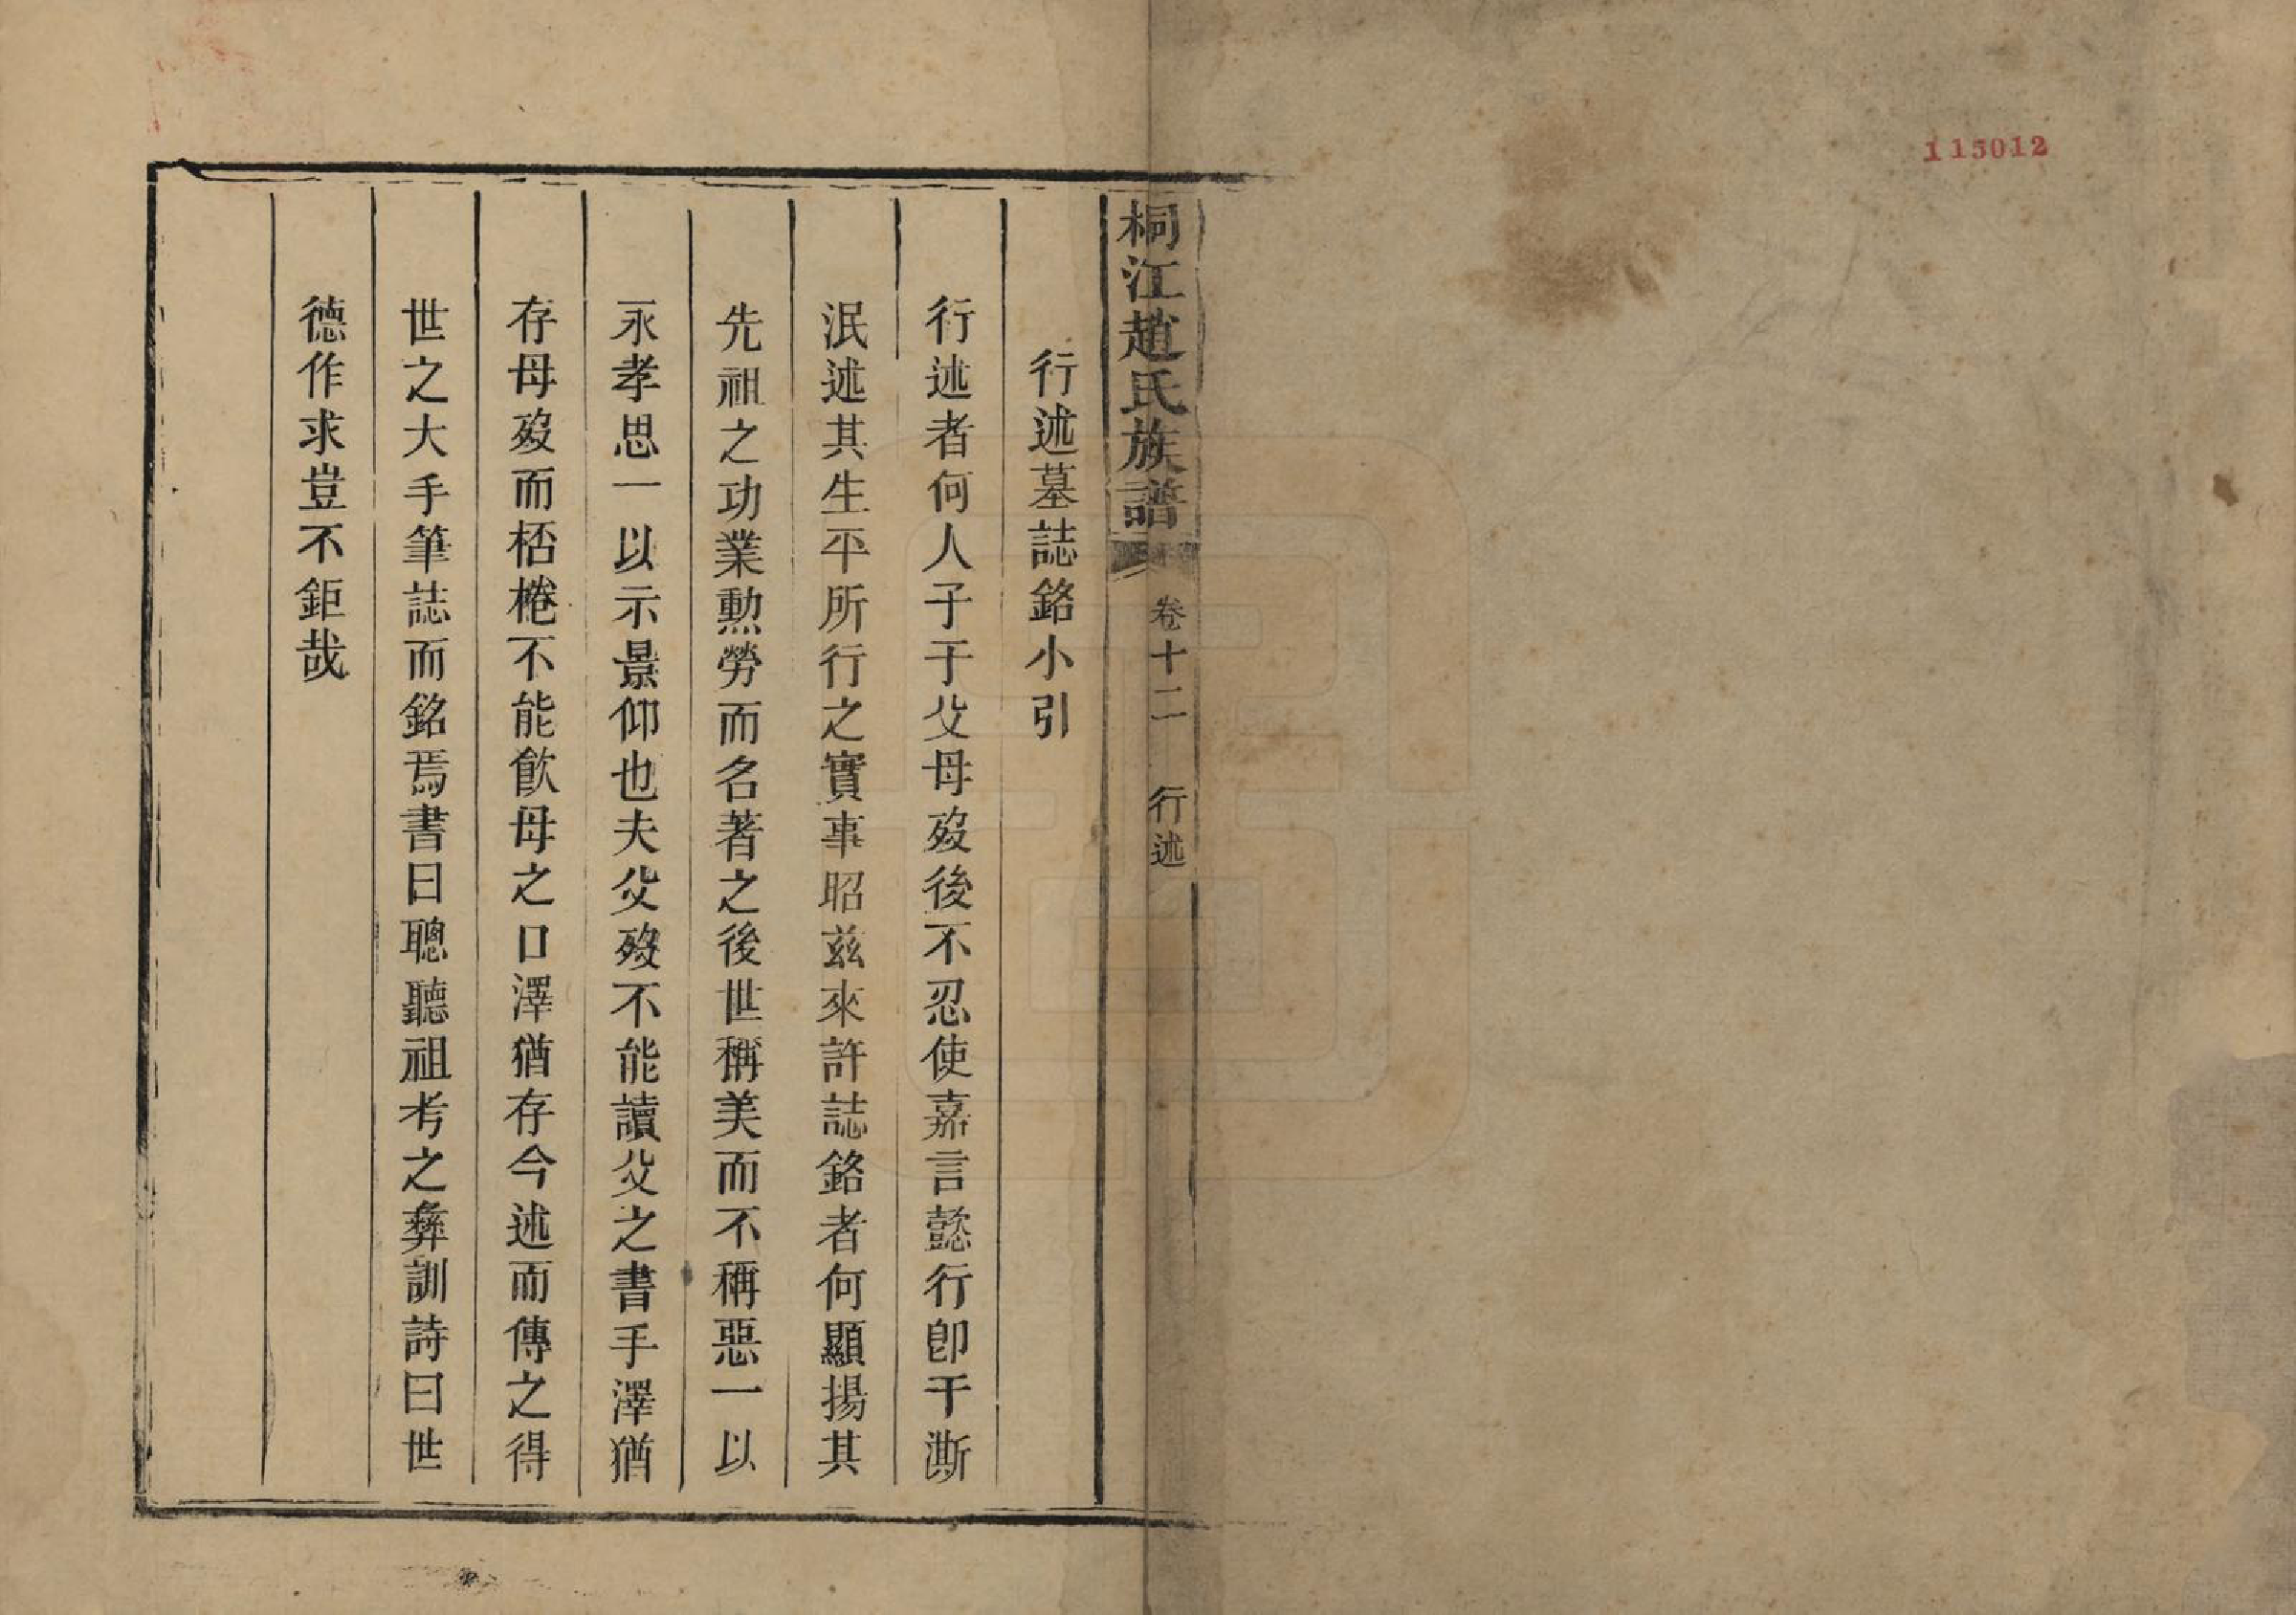 115012
桐江趙氏族譜 卷十二 行述
行述墓誌銘小引
行述者何人子于父母歿後不忍使嘉言懿行卽于澌
泯述其生平所行之實事昭兹來許誌銘者何顯揚其
先祖之功業勳勞而名著之後世稱美而不稱惡一以
永孝思一以示景仰也夫父歿不能讀父之書手澤猶
存母歿而桮棬不能飲母之口澤猶存今述而傳之得
世之大手筆誌而銘焉書曰聰聽祖考之彝訓詩曰世
德作求豈不鉅哉